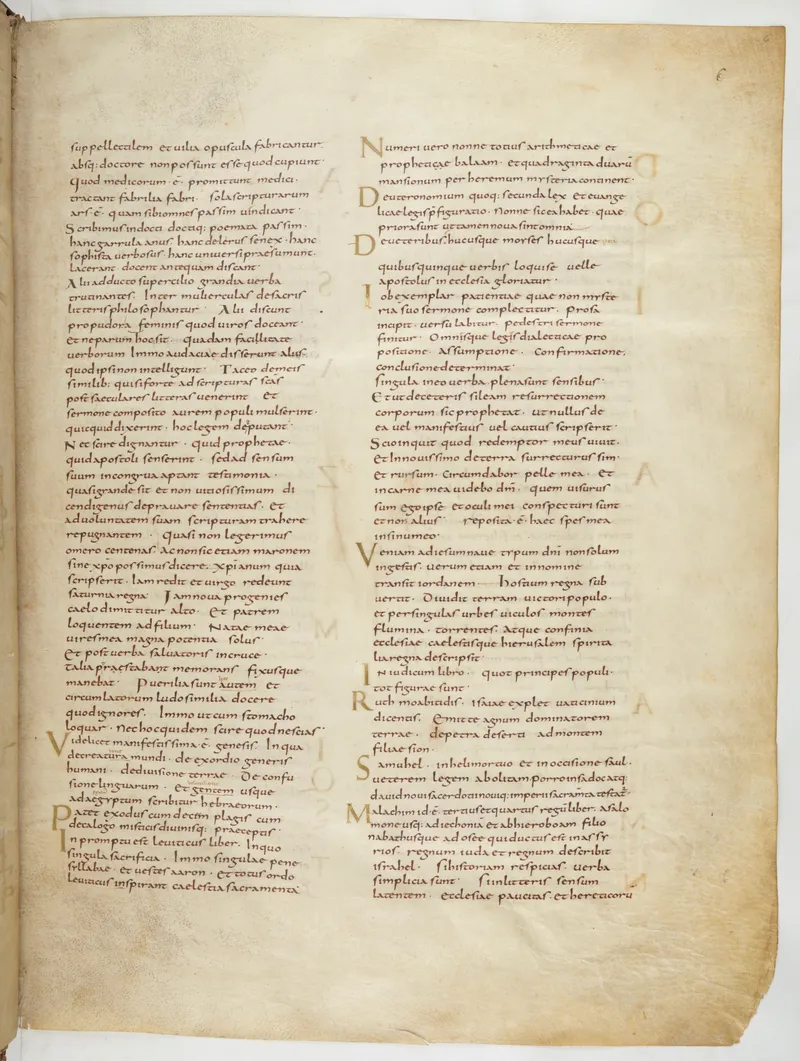 6
suppellectilem et uilia opuscula fabricantur.
absq: doctore non possunt esse quod cupiunt.
Quod medicorum .e. promittunt medici.
tractant fabrilia fabri. sola scripturarum
ars .e. quam sibi omnes passim uindicant.
Scribimus indocti doctiq: poemata passim.
hanc garrula anus hanc delerus senex. hanc
sophista uerbosus hanc uniuersi praesumunt.
lacerant. docent antequam discant.
Alii adducto supercilio grandia uerba
trutinantes. Inter mulierculas de sacris
litteris philosophantur. Alii discunt
pro pudor a feminis quod uiros doceant.
Et ne parum hoc sit. quadam facilitate
uerborum Immo audaciae disserunt aliis.
quod ipsi non intellegunt. Taceo de meis
similib: qui si forte ad scripturas scas
post saeculares litteras uenerint. Et
sermone composito aurem populi mulserint.
quicquid dixerint. hoc legem dei putant.
Nec scire dignantur. quid prophetae.
quid apostoli senserint. sed ad sensum
suum incongrua aptant testimonia.
quasi grande sit et non uitiosissimum di
cendi genus deprauare sententias. Et
ad uoluntatem suam scripturam trahere
repugnantem. Quasi non legerimus
omero centonas. Ac non sic etiam maronem
sine xpo possimus dicere. xpianum quia
scripserit. Iam redit et uirgo redeunt
saturnia regna. Iam noua progenies
caelo dimittitur alto. Et patrem
loquentem ad filium. Natae meae
uires mea magna potentia solus.
Et post uerba saluatoris in cruce.
talia praestabant memorans fixusque
manebat. Puerilia sunt autem et
circumlatorum ludo similia docere
quod ignores. Immo ut cum stomacho
loquar. Nec hoc quidem scire quod nescias.
Videlicet manifestissima .e. genesis. In qua
de creatura mundi. de exordio generis
humani. de diuisione terrae. De confu
sione linguarum. Et gentem usque
ad aegyptum scribitur hebraeorum.
Patet exodus cum decem plagis cum
decalogo misticis diuinisq: praeceptis
In promptu est leuiticus liber. In quo
singula sacrificia. Immo singulae pene
syllabae. et uestes aaron. et totus ordo
leuiticus inspirant caelestia sacramenta
Numeri uero nonne totius arithmeticae et
propheticae balaam. et quadraginta duarū
mansionum per heremum mysteria continent.
Deuteronomium quoq: secunda lex et euange
licae legis pfiguratio. Nonne sic ea habet. quae
priora sunt ut tamen noua sint omnia
Deueteribus. hucusque morses hucusque
quibus quinque uerbis loqui se uelle
apostolus in ecclesia gloriatur.
Iob exemplar patientiae quae non myste
ria suo sermone complectitur. Prosa
incipit. uersu labitur. pedestri sermone
finitur. Omnisque legis dialecticae pro
positione. Assumptione. Confirmatione.
conclusione determinat.
singula in eo uerba plena sunt sensibus.
Et ut de ceteris sileam resurrectionem
corporum sic prophetat. ut nullus de
ea uel manifestius uel cautius scripserit.
Scio inquit quod redemptor meus uiuit.
et In nouissimo de terra surrecturus sim.
et rursum. Circumdabor pelle mea. Et
in carne mea uidebo dm̄. quem uisurus
sum ego ipse et oculi mei conspecturi sunt
et non alius. reposita .e. haec spes mea
in sinu meo.
Veniam ad iesum naue typum dni non solum
in gestis. uerum etiam et in nomine
transit iordanem hostium regna sub
uertit. Diuidit terram uictori populo.
et per singulas urbes uiculos montes
flumina. torrentes. Atque confinia
ecclesiae caelestisque hierusalem spirita
lia regna describit.
In iudicum libro. quot principes populi.
tot figurae sunt.
Ruth moabitidis. isaiae explet uaticinium
dicentis. Emitte agnum dominatorem
terrae. de petra deserti ad montem
filiae sion.
Samuhel. in heli mortuo et in occisione saul.
ueterem legem abolitam. porro in sadoc atq:
dauid noui sacerdotii noui q: imperii sacramta testat.
Malachim id .e. tertius et quartus regū liber. a salo
mone usq: ad iechoniā et ab hieroboam filio
nabath usque ad osee qui ductus est in assy
rios. regnum iuda et regnum describit
israhel. Si historiam respicias. uerba
simplicia sunt. Si in litteris sensum
latentem. ecclesiae paucitas. et hereticorū